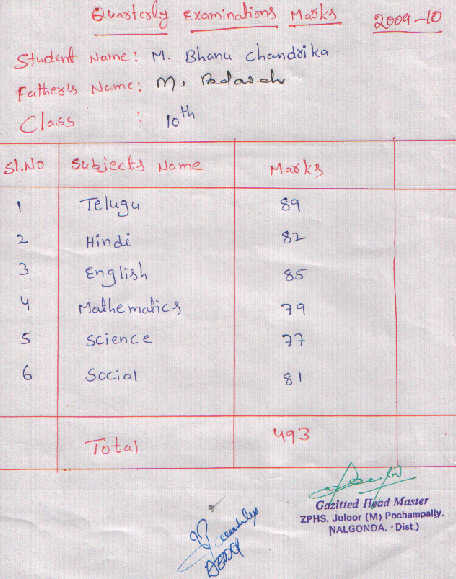 Quarterly Examinations Marks 2009-10
Student Name: M. Bhanu Chandrika
Father's Name: M.
Class : 10th
Sl.No Subjects Name Marks
1 Telugu 89
2 Hindi 82
3 English 85
4 Mathematics 79
5 Science 77
6 Social 81
Total 493
Gazitted Head Master
ZPHS, Juloor (M) Pochampally,
NALGONDA. (Dist.)